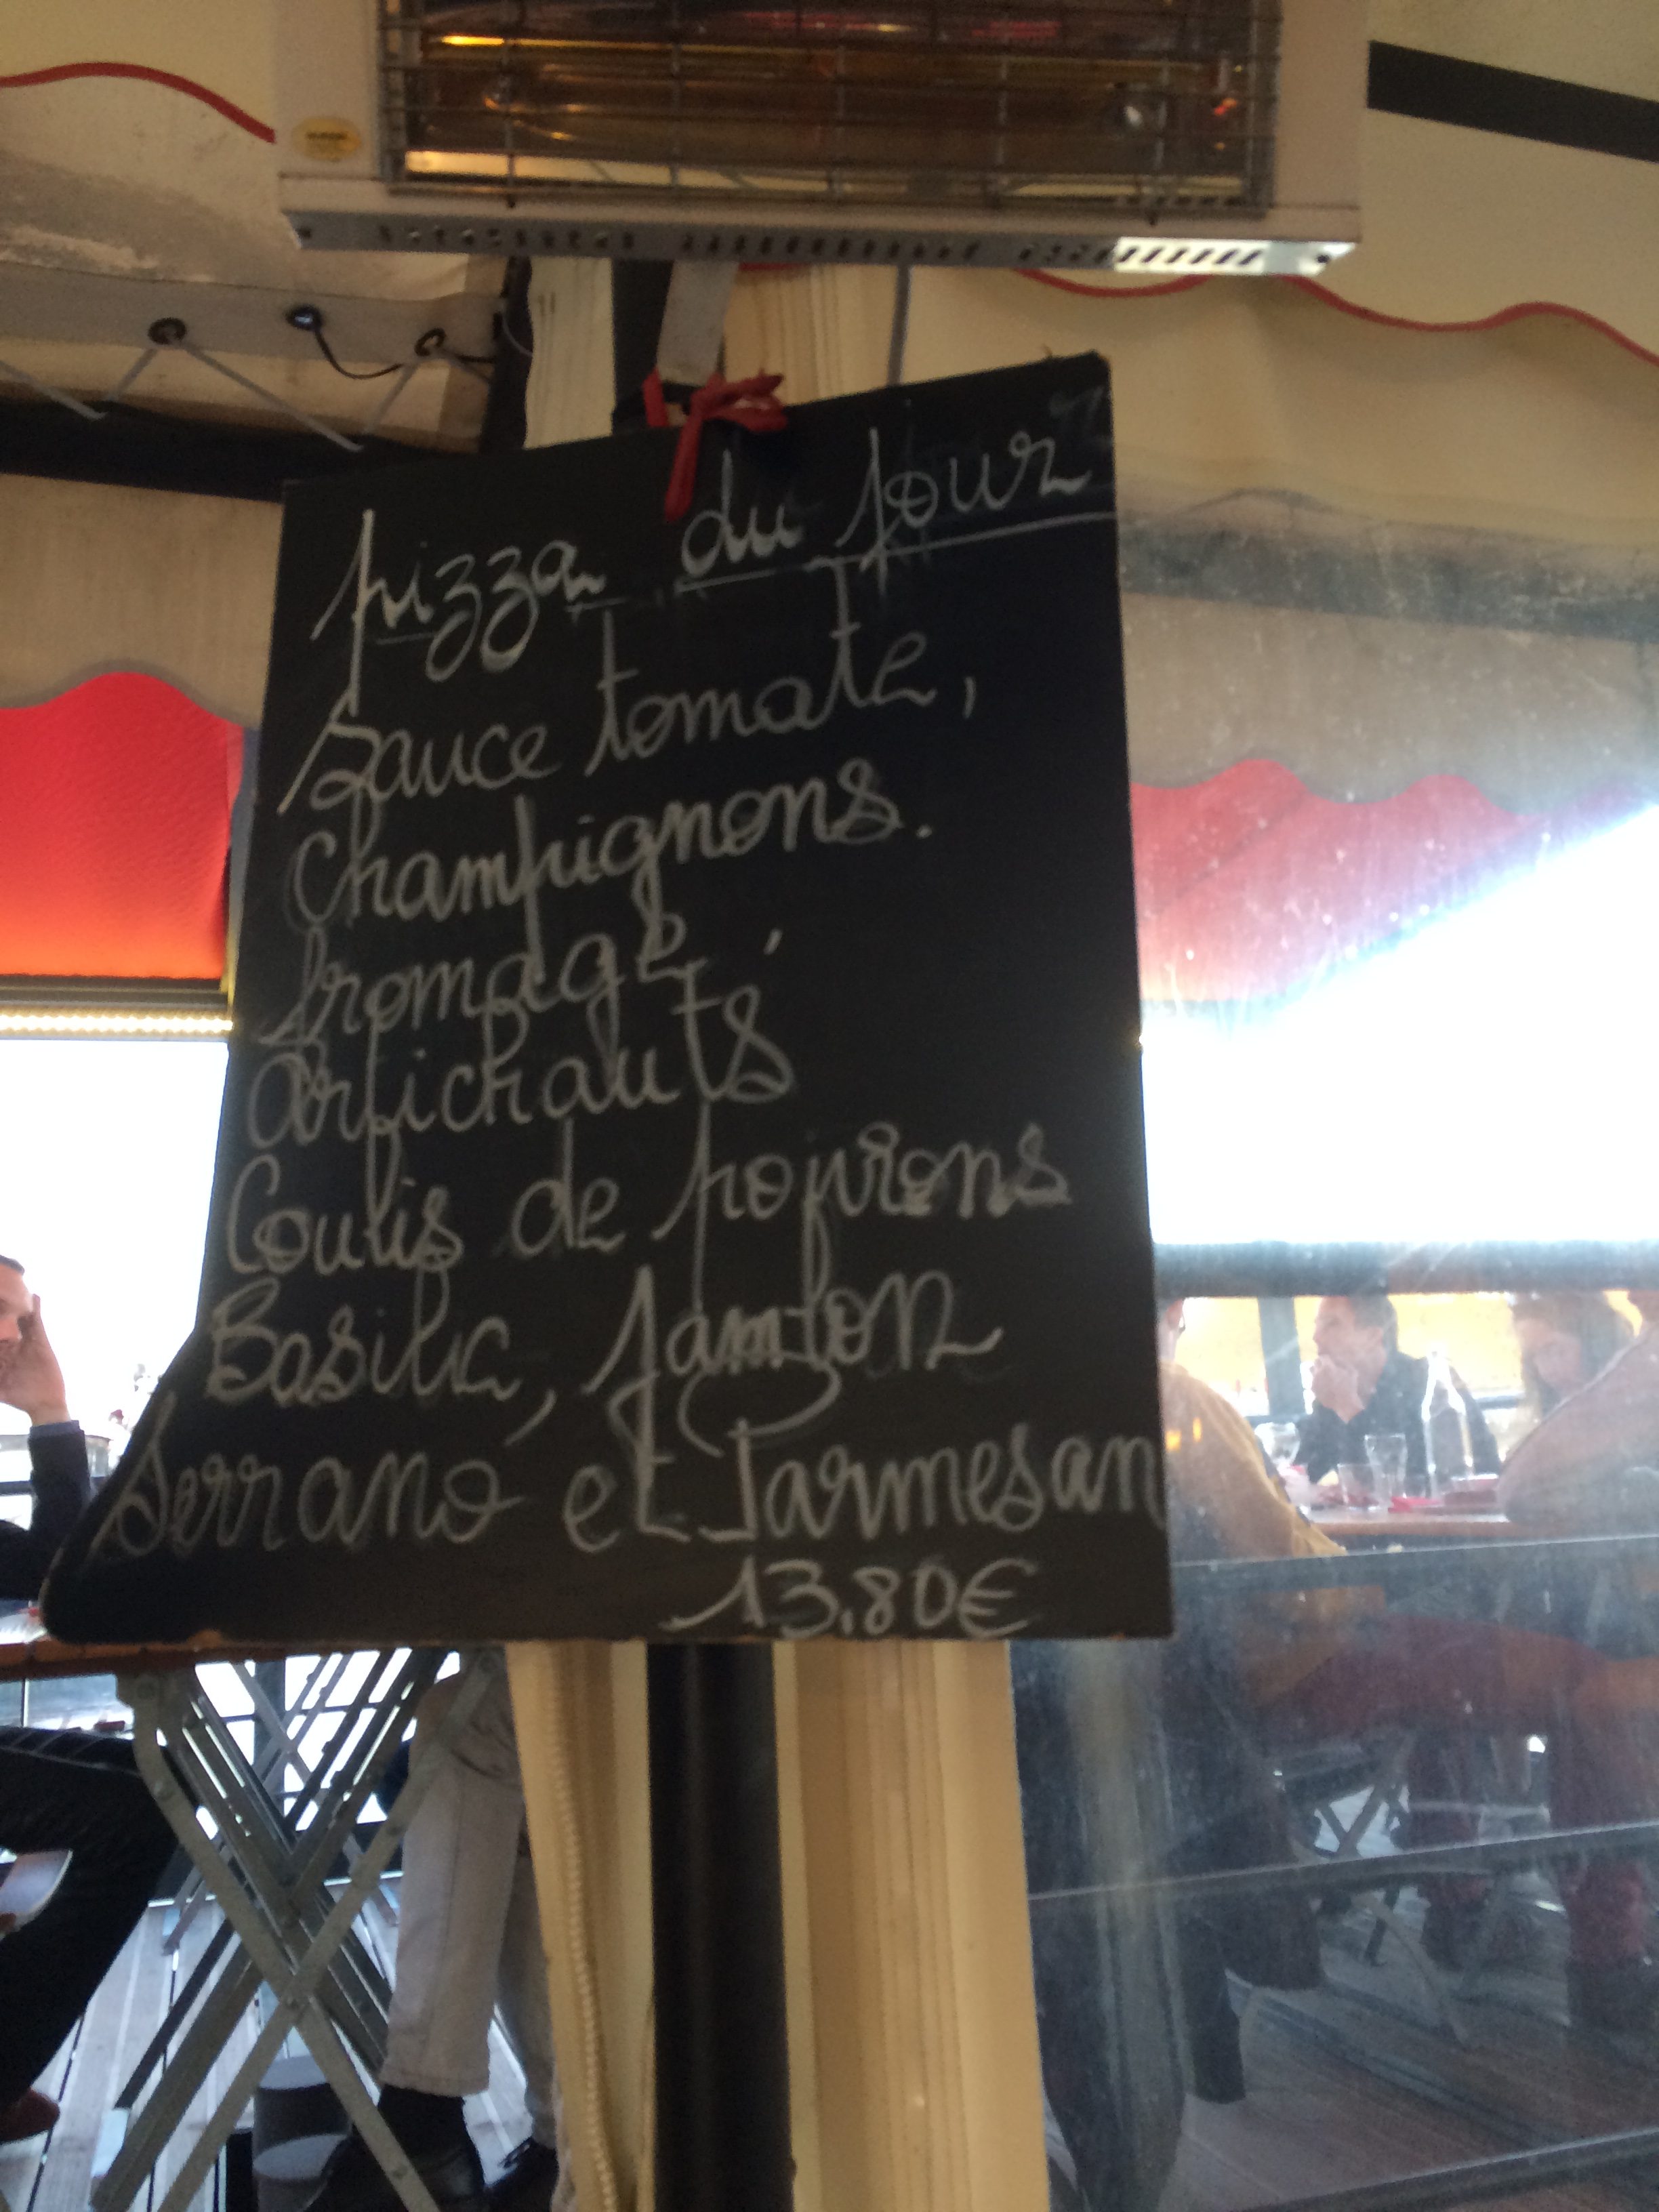 pizza du jour
Sauce tomate,
Champignons.
fromage,
artichauts
Coulis de poivrons
Basilic, jambon
Serrano et Parmesan
13.80€